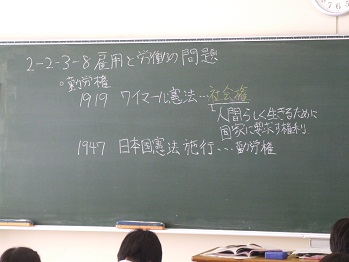 2-2-3-8 雇用と労働の問題
○勤労権
1919 ワイマール憲法…社会権
人間らしく生きるために
国家に要求す権利
1947 日本国憲法施行…勤労権